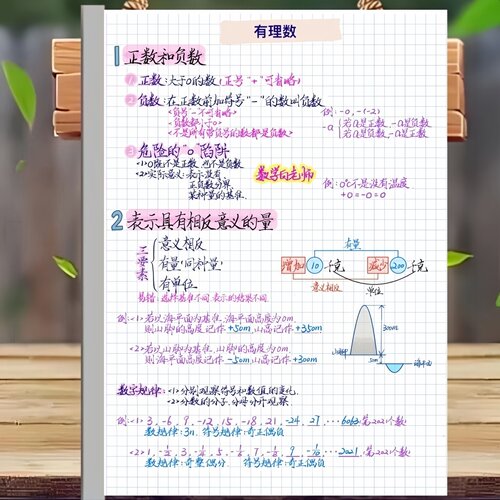 有理数
1 正数和负数
① 正数:大于0的数(正号"+"可省略)
② 负数:在正数前加符号"-"的数叫负数
<负号"-"不可省略>
<负数都小于0>
<不是所有带负号的数都是负数>
例:-0,-(-2)
-a {若a是正数,-a是负数
若a是负数,-a是正数
③ 危险的"0"陷阱
<1>0既不是正数,也不是负数
<2>实际意义:表示没有
正负数分界
某种量的基准
数学白老师
例:0℃不是没有温度
+0=-0=0
2 表示具有相反意义的量
三要素
意义相反
有量(同种量)
有单位
有量
增加 10 千克
减少 200 千克
意义相反
单位
易错:选择基准不同,表示的结果不同
例:<1>若以海平面为基准,海平面高度为0m
则山脚的高度记作+50m,山高记作+350m
<2>若以山脚为基准,山脚的高度为0m
则海平面高度记作-50m,山高记作+300m
300m
山脚
50m
海平面
数字规律:<1>分别观察符号和数值的变化
<2>分数的分子、分母分开观察
例:<1>3,-6,9,-12,15,-18,21,-24,27,…6063 第2021个数
数规律:3n 符号规律:奇正偶负
2021 第2021个数
数规律:奇整偶分 符号规律:奇正偶负